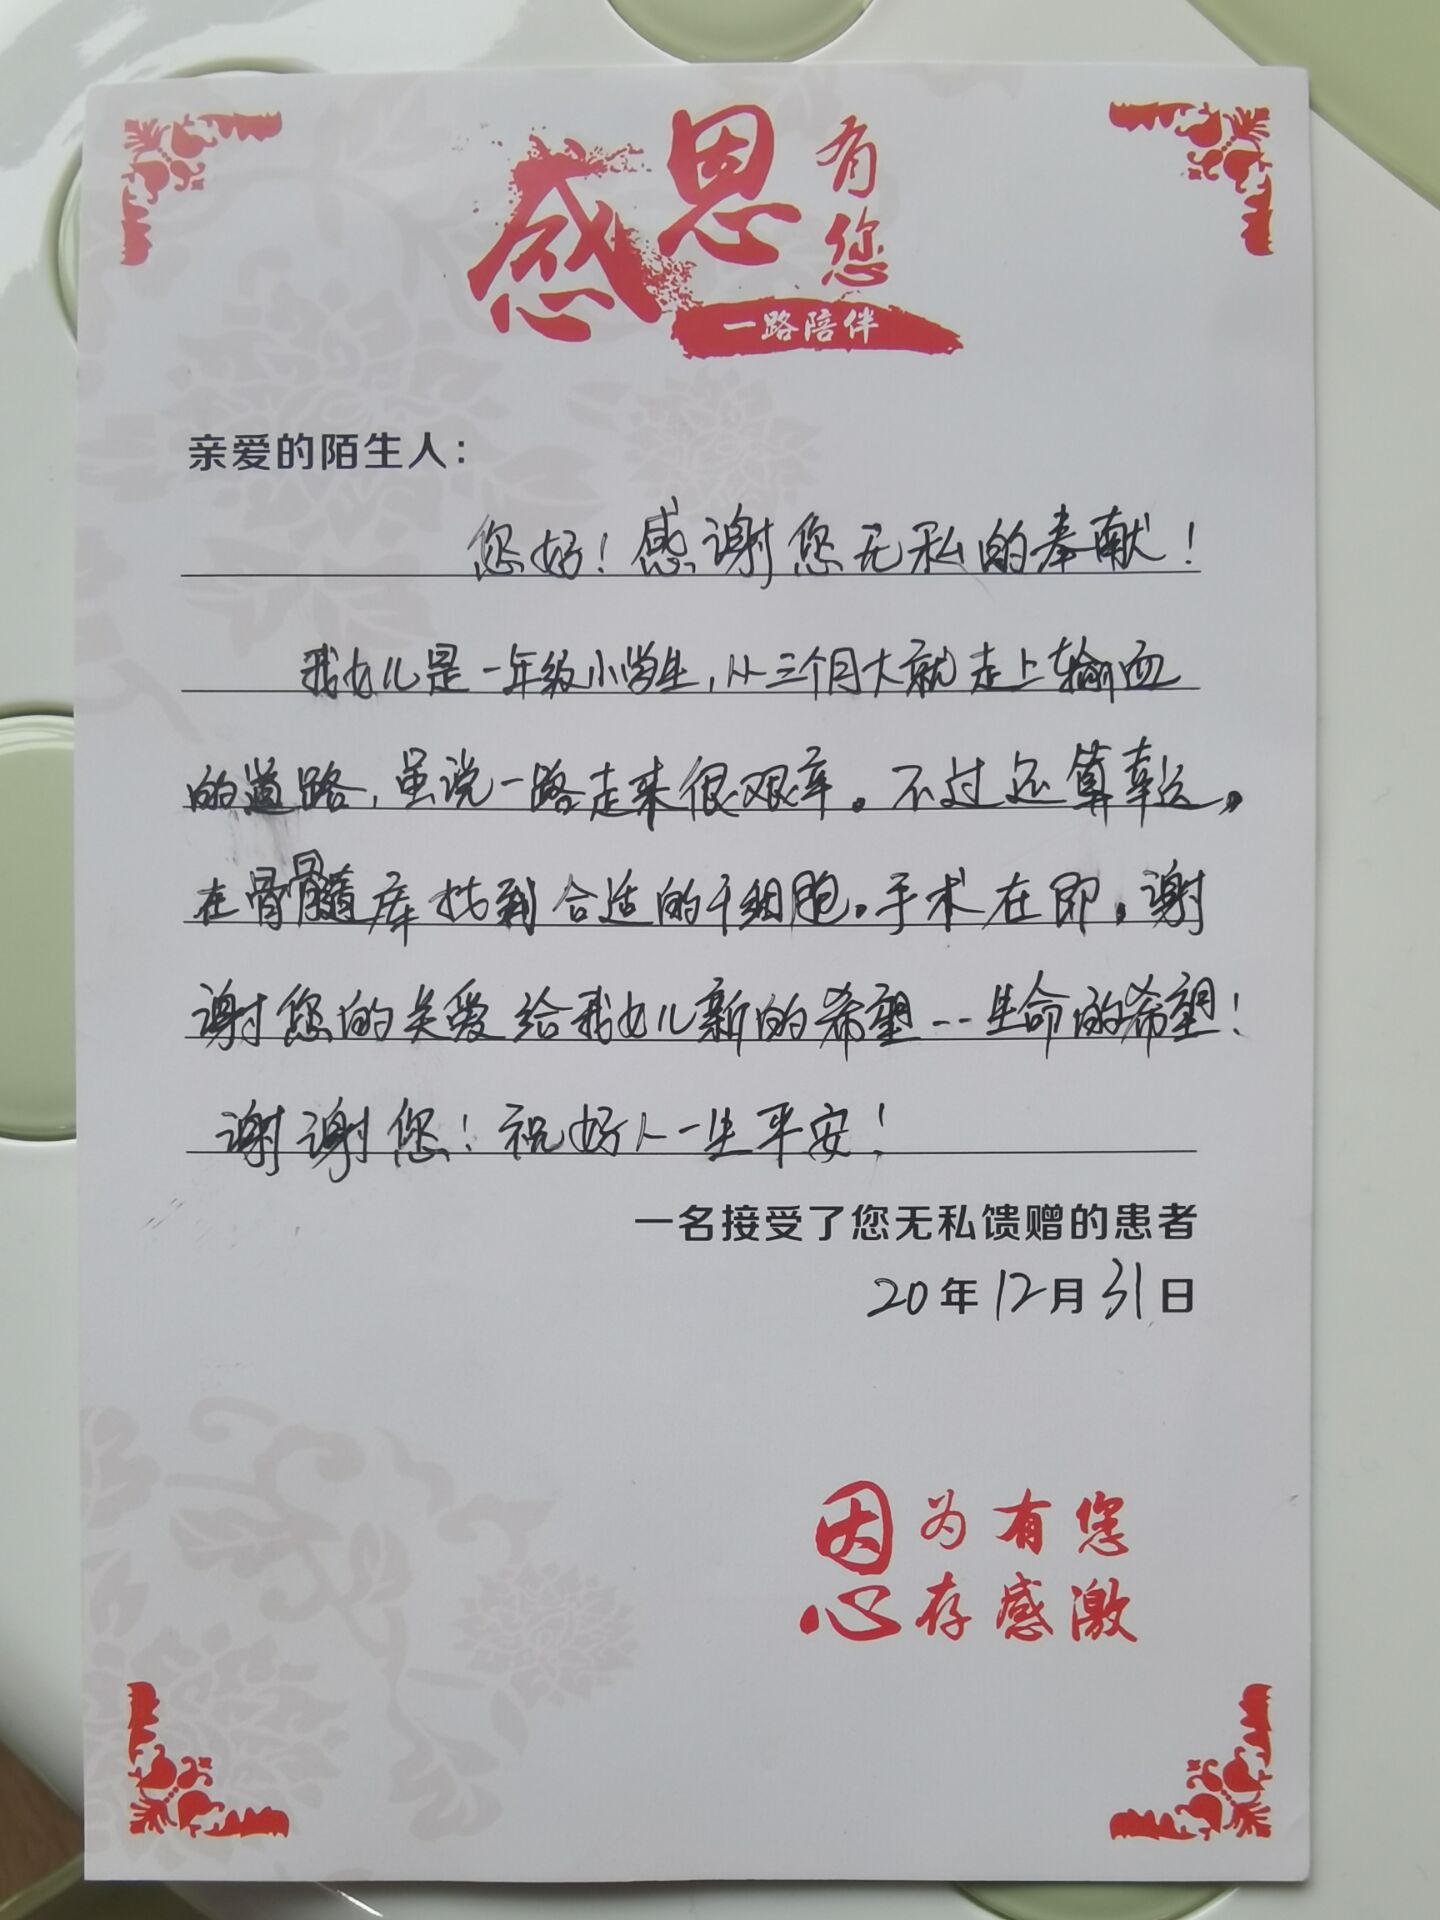 感恩有您
一路陪伴
亲爱的陌生人：
您好！感谢您无私的奉献！
我女儿是一年级小学生，从三个月大就走上输血
的道路，虽说一路走来很艰辛。不过还算幸运。
在骨髓库找到合适的干细胞。手术在即，谢
谢您的关爱给我女儿新的希望--生命的希望！
谢谢您！祝好人一生平安！
一名接受了您无私馈赠的患者
20年12月31日
因为有您
心存感激